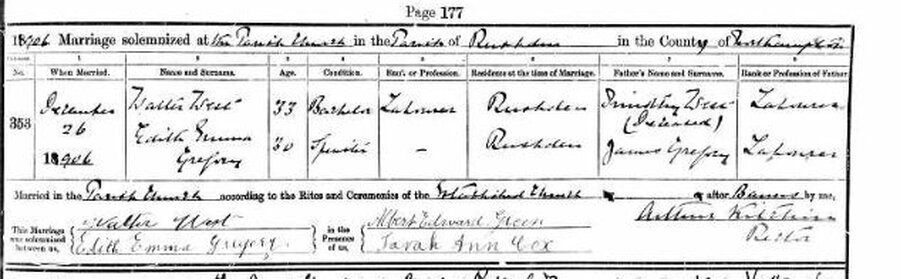 Page 177
1906 Marriage solemnized at the Parish Church in the Parish of Rushden in the County of Northampton
1 2 3 4 5 6 7 8
No. When Married. Name and Surname. Age. Condition. Rank or Profession. Residence at the time of Marriage. Father's Name and Surname. Rank or Profession of Father
353 December 26 1906 Walter West 33 Bachelor Labourer Rushden Timothy West (Deceased) Labourer
Edith Emma Gregory 30 Spinster – Rushden James Gregory Labourer
Married in the Parish Church according to the Rites and Ceremonies of the Established Church after Banns by me,
This Marriage was solemnized between us, Walter West in the Presence of us, Albert Edward Green Arthur
Edith Emma Gregory. Sarah Ann Cox Rector